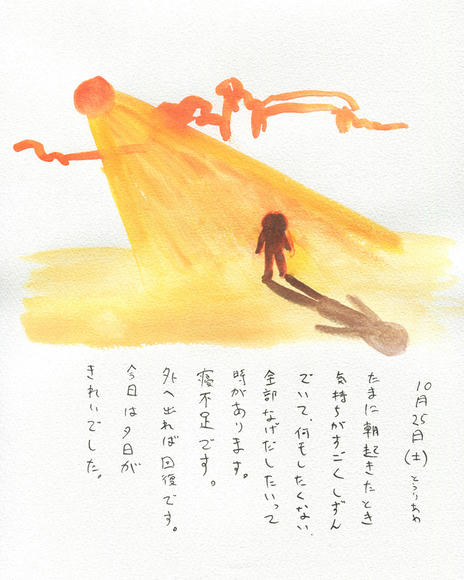 10月25日(土)
たまに朝起きたとき
気持ちがすごくしずん
でいて、何もしたくない、
全部なげだしたいって
時があります。
寝不足です。
外へ出れば回復です。
今日は夕日が
きれいでした。